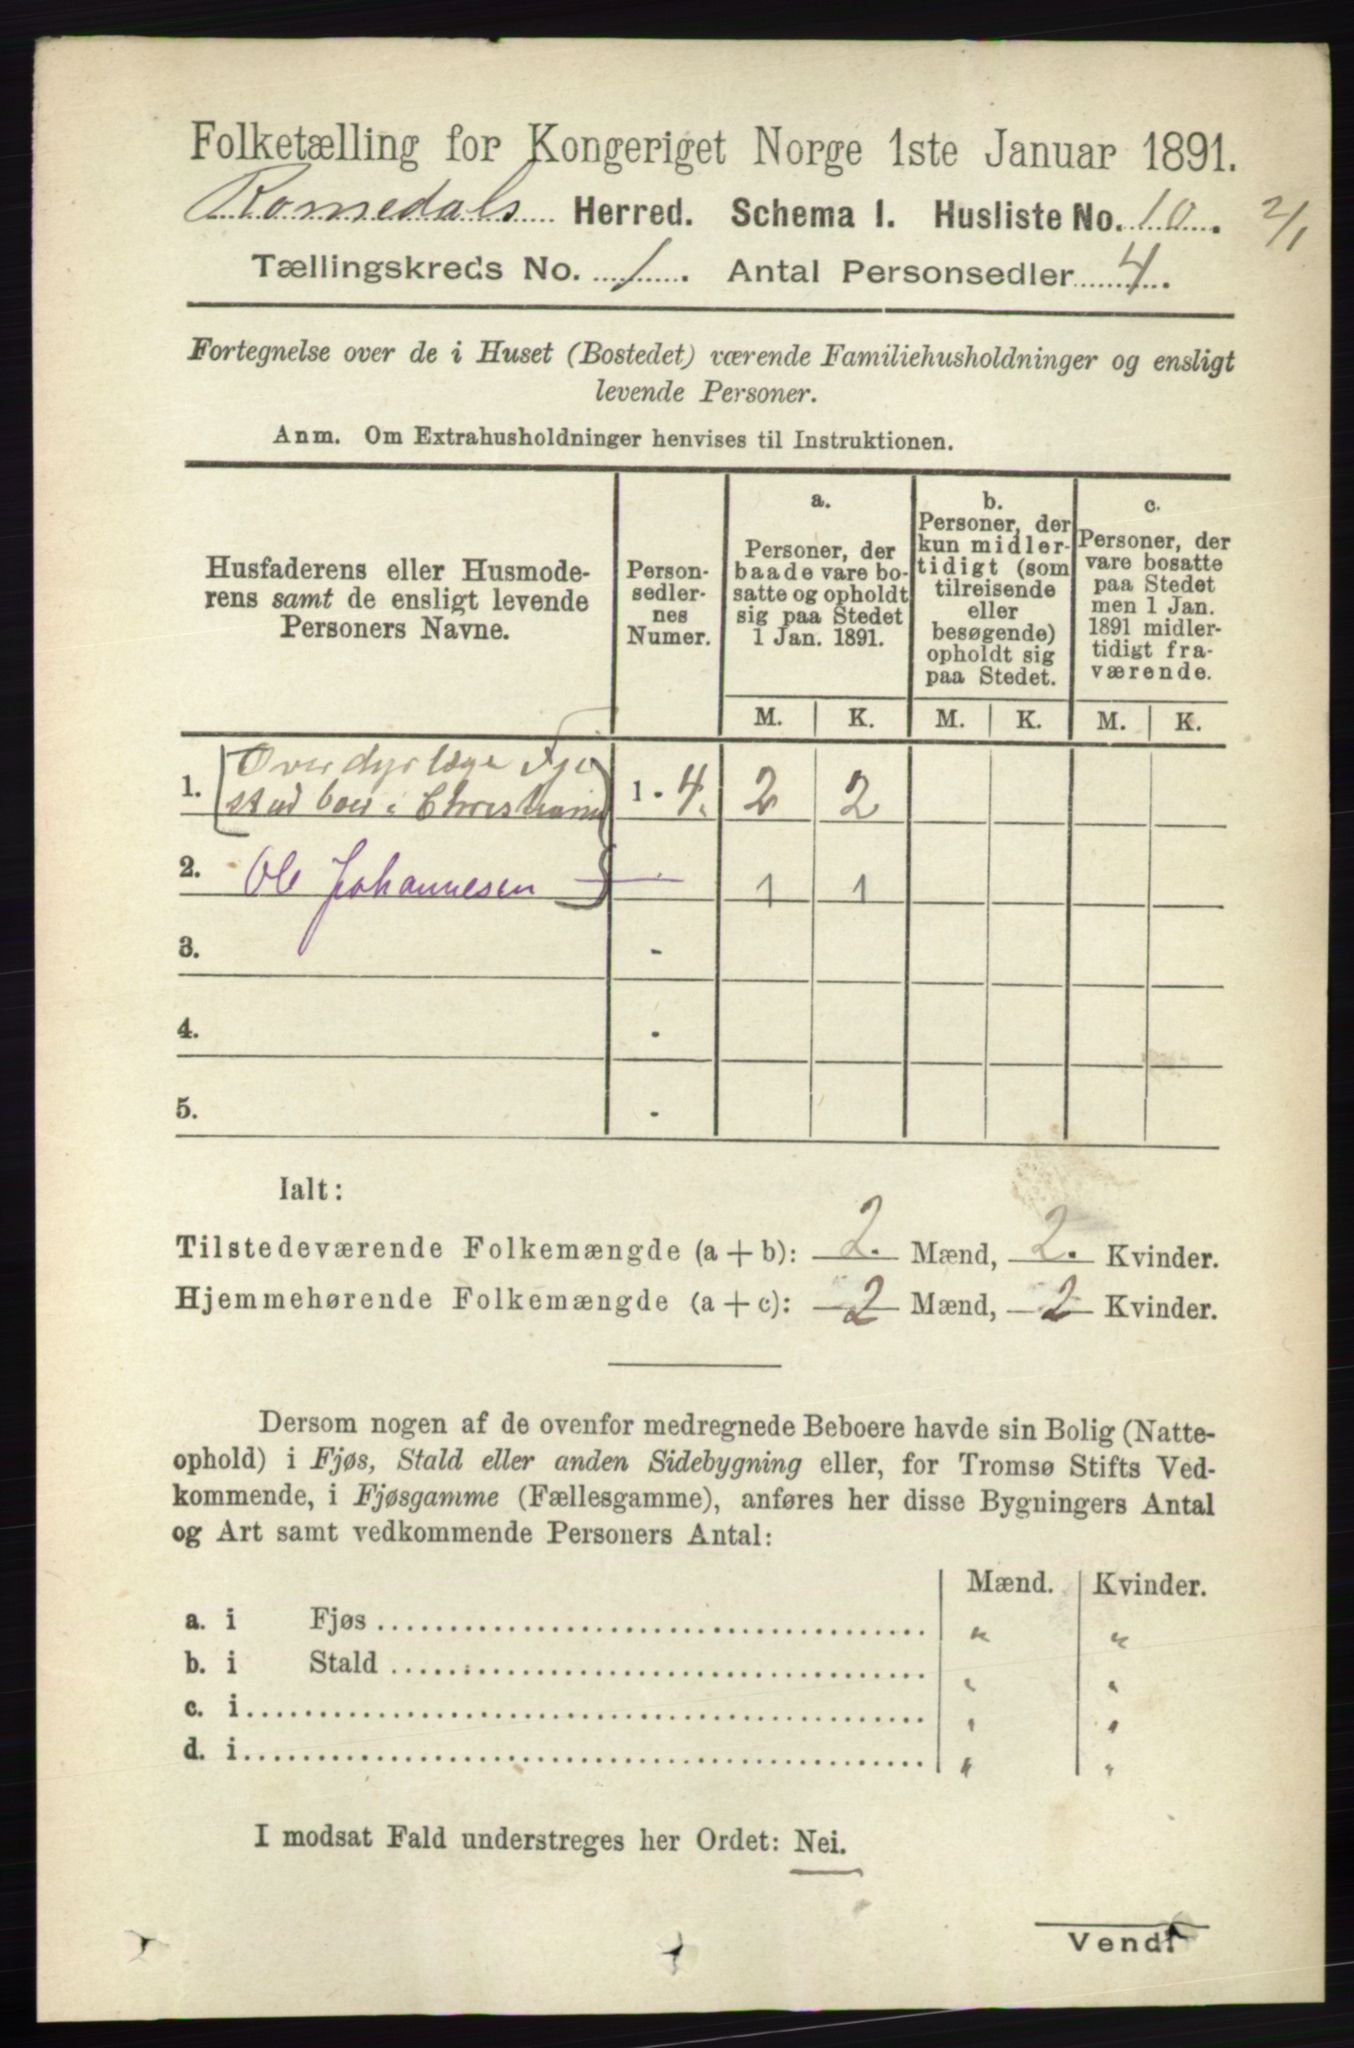 Folketælling for Kongeriget Norge 1ste Januar 1891.
Romedals Herred. Schema 1. Husliste No. 10. 2/1
Tællingskreds No. 1. Antal Personsedler 4.
Fortegnelse over de i Huset (Bostedet) værende Familiehusholdninger og ensligt
levende Personer.
Anm. Om Extrahusholdninger henvises til Instruktionen.
Husfaderens eller Husmode-
rens samt de ensligt levende
Personers Navne.
Person-
sedler-
nes
Numer.
a.
Personer, der
baade vare bo-
satte og opholdt
sig paa Stedet
1 Jan. 1891.
b.
Personer, der
kun midler-
tidigt (som
tilreisende
eller
besøgende)
opholdt sig
paa Stedet.
c.
Personer, der
vare bosatte
paa Stedet
men 1 Jan.
1891 midler-
tidigt fra-
værende.
M. K. M. K. M. K.
1. Overdyrlæge Fje
stad boer i Christiania 1 - 4. 2 2
2. Ole Johannesen - 1 1
3. -
4. -
5. -
Ialt:
Tilstedeværende Folkemængde (a + b): 2. Mænd, 2. Kvinder.
Hjemmehørende Folkemængde (a + c): 2 Mænd, 2 Kvinder.
Dersom nogen af de ovenfor medregnede Beboere havde sin Bolig (Natte-
ophold) i Fjøs, Stald eller anden Sidebygning eller, for Tromsø Stifts Ved-
kommende, i Fjøsgamme (Fællesgamme), anføres her disse Bygningers Antal
og Art samt vedkommende Personers Antal:
Mænd. Kvinder.
a. i Fjøs " "
b. i Stald " "
c. i " "
d. i " "
I modsat Fald understreges her Ordet: Nei.
Vend!